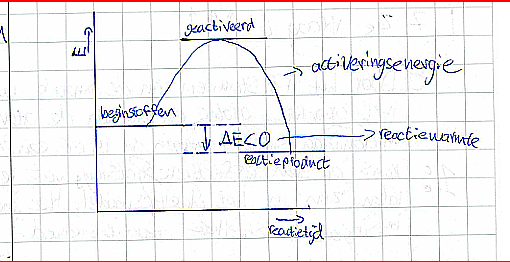 geactiveerd
E
activeringsenergie
beginstoffen
ΔE<0
reactiewarmte
reactieproduct
reactietijd